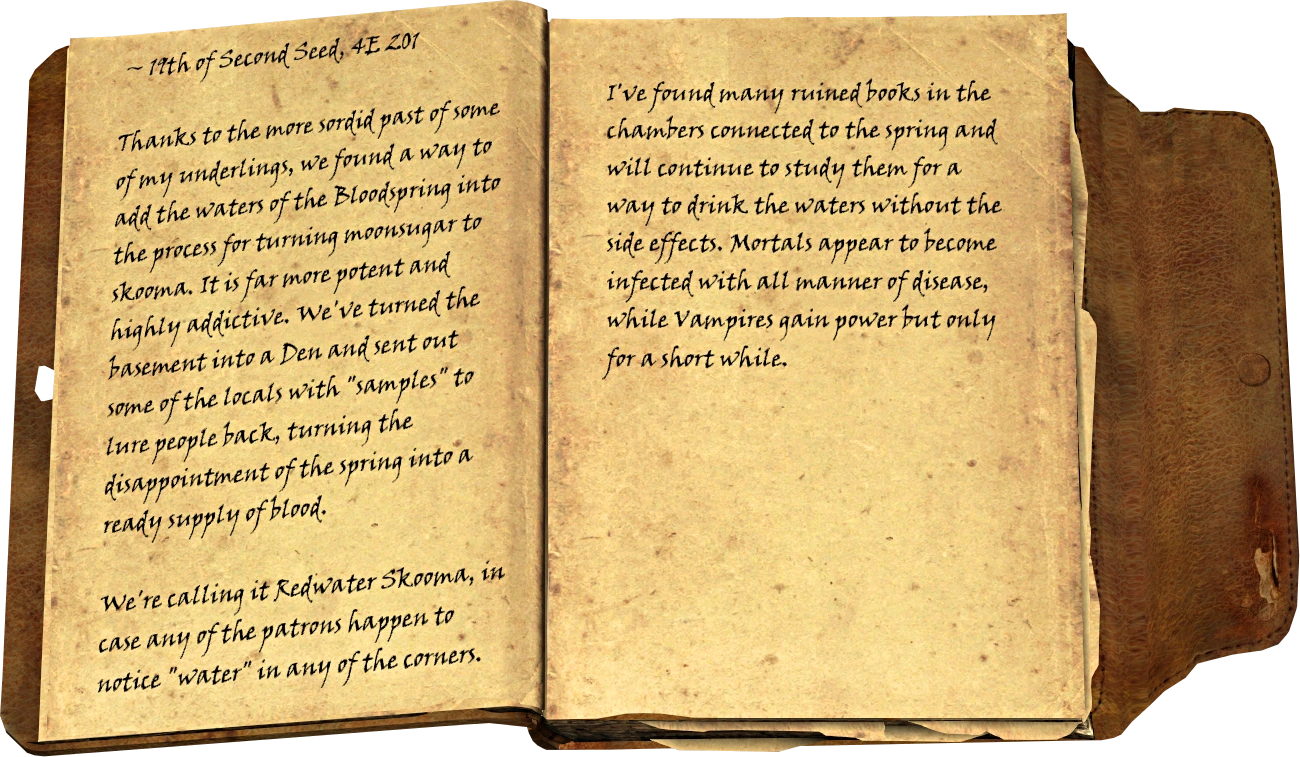 ~ 19th of Second Seed, 4E 201
Thanks to the more sordid past of some
of my underlings, we found a way to
add the waters of the Bloodspring into
the process for turning moonsugar to
skooma. It is far more potent and
highly addictive. We've turned the
basement into a Den and sent out
some of the locals with "samples" to
lure people back, turning the
disappointment of the spring into a
ready supply of blood.
We're calling it Redwater Skooma, in
case any of the patrons happen to
notice "water" in any of the corners.
I've found many ruined books in the
chambers connected to the spring and
will continue to study them for a
way to drink the waters without the
side effects. Mortals appear to become
infected with all manner of disease,
while Vampires gain power but only
for a short while.